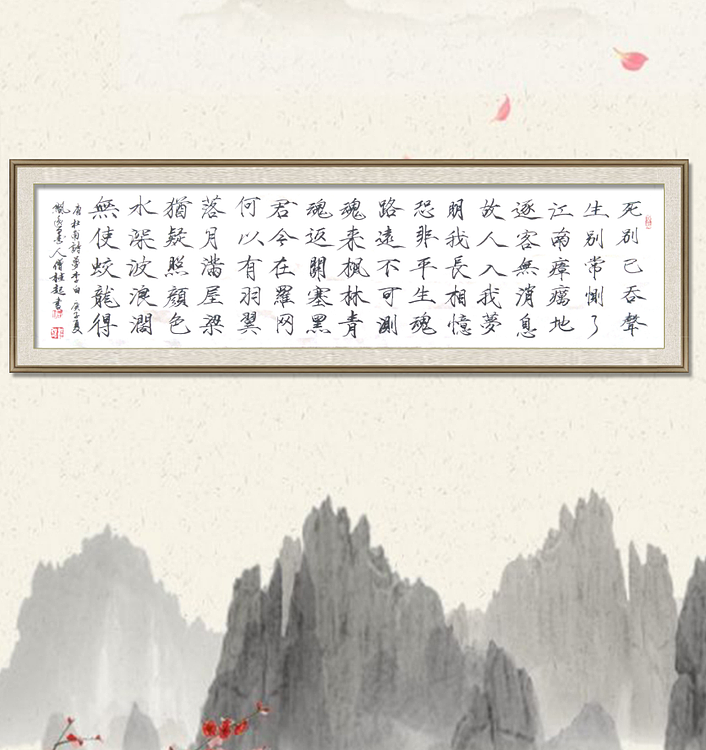 死别已吞聲
生别常惻々
江南瘴癘地
逐客無消息
故人入我夢
明我長相憶
恐非平生魂
路遠不可測
魂来楓林青
魂返關塞黑
君今在羅网
何以有羽翼
落月滿屋梁
猶疑照顔色
水深波浪濶
無使蛟龍得
唐杜甫詩夢李白 庚子夏
人曾桂起書